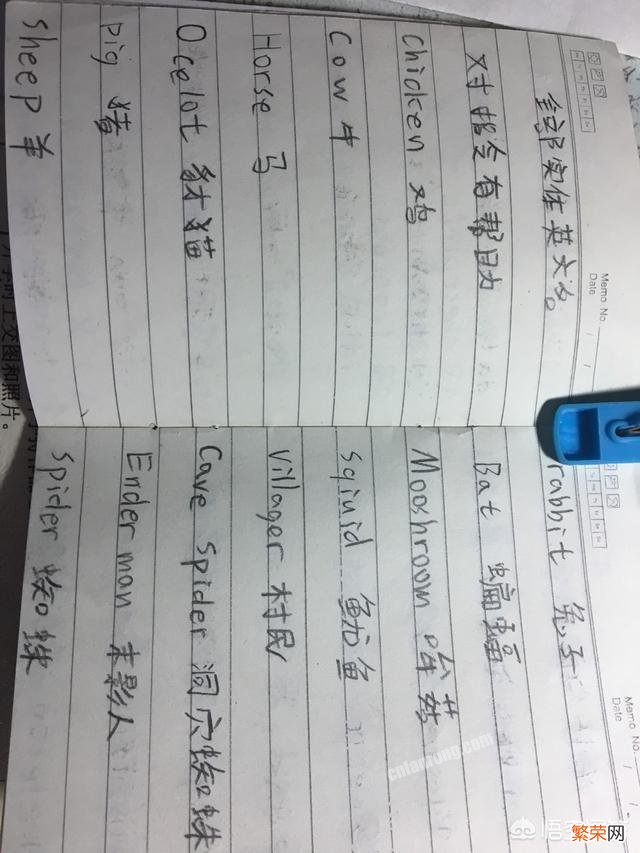 Memo No.
Date / /
全部实体英文名
对指令有帮助
Chicken 鸡
Cow 牛
Horse 马
Ocelot 豺猫
Pig 猪
Sheep 羊
Memo No.
Date / /
rabbit 兔子
Bat 蝙蝠
Mooshroom 哞菇
Sqiuid 鱿鱼
Villager 村民
Cave Spider 洞穴蜘蛛
Ender man 末影人
Spider 蜘蛛
上交图和照片。
cnfanrong.com
繁荣网